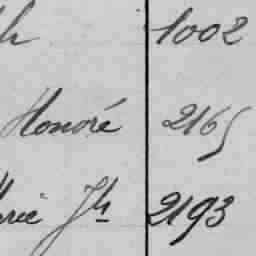 h 1002
Honoré 2165
Marie Jh 2193